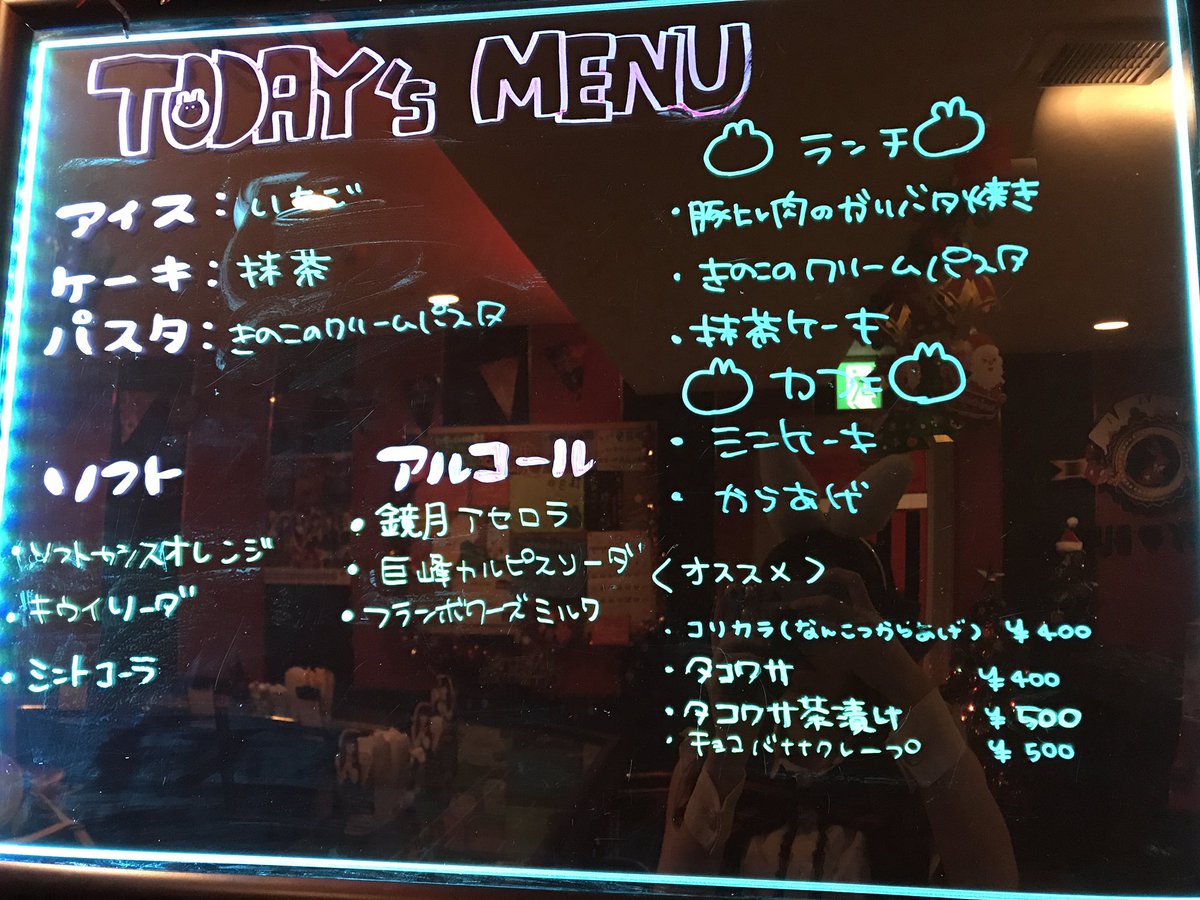 TODAY's MENU
アイス：いちご
ケーキ：抹茶
パスタ：きのこのクリームパスタ
ソフト
・ソフトカシスオレンジ
・キウイソーダ
・ミントコーラ
アルコール
・鏡月アセロラ
・巨峰カルピスソーダ
・フランボワーズミルク
ランチ
・豚ヒレ肉のガリバタ焼き
・きのこのクリームパスタ
・抹茶ケーキ
カフェ
・ミニケーキ
・からあげ
〈オススメ〉
・コリカラ(なんこつからあげ) ¥400
・タコワサ ¥400
・タコワサ茶漬け ¥500
・チョコバナナクレープ ¥500